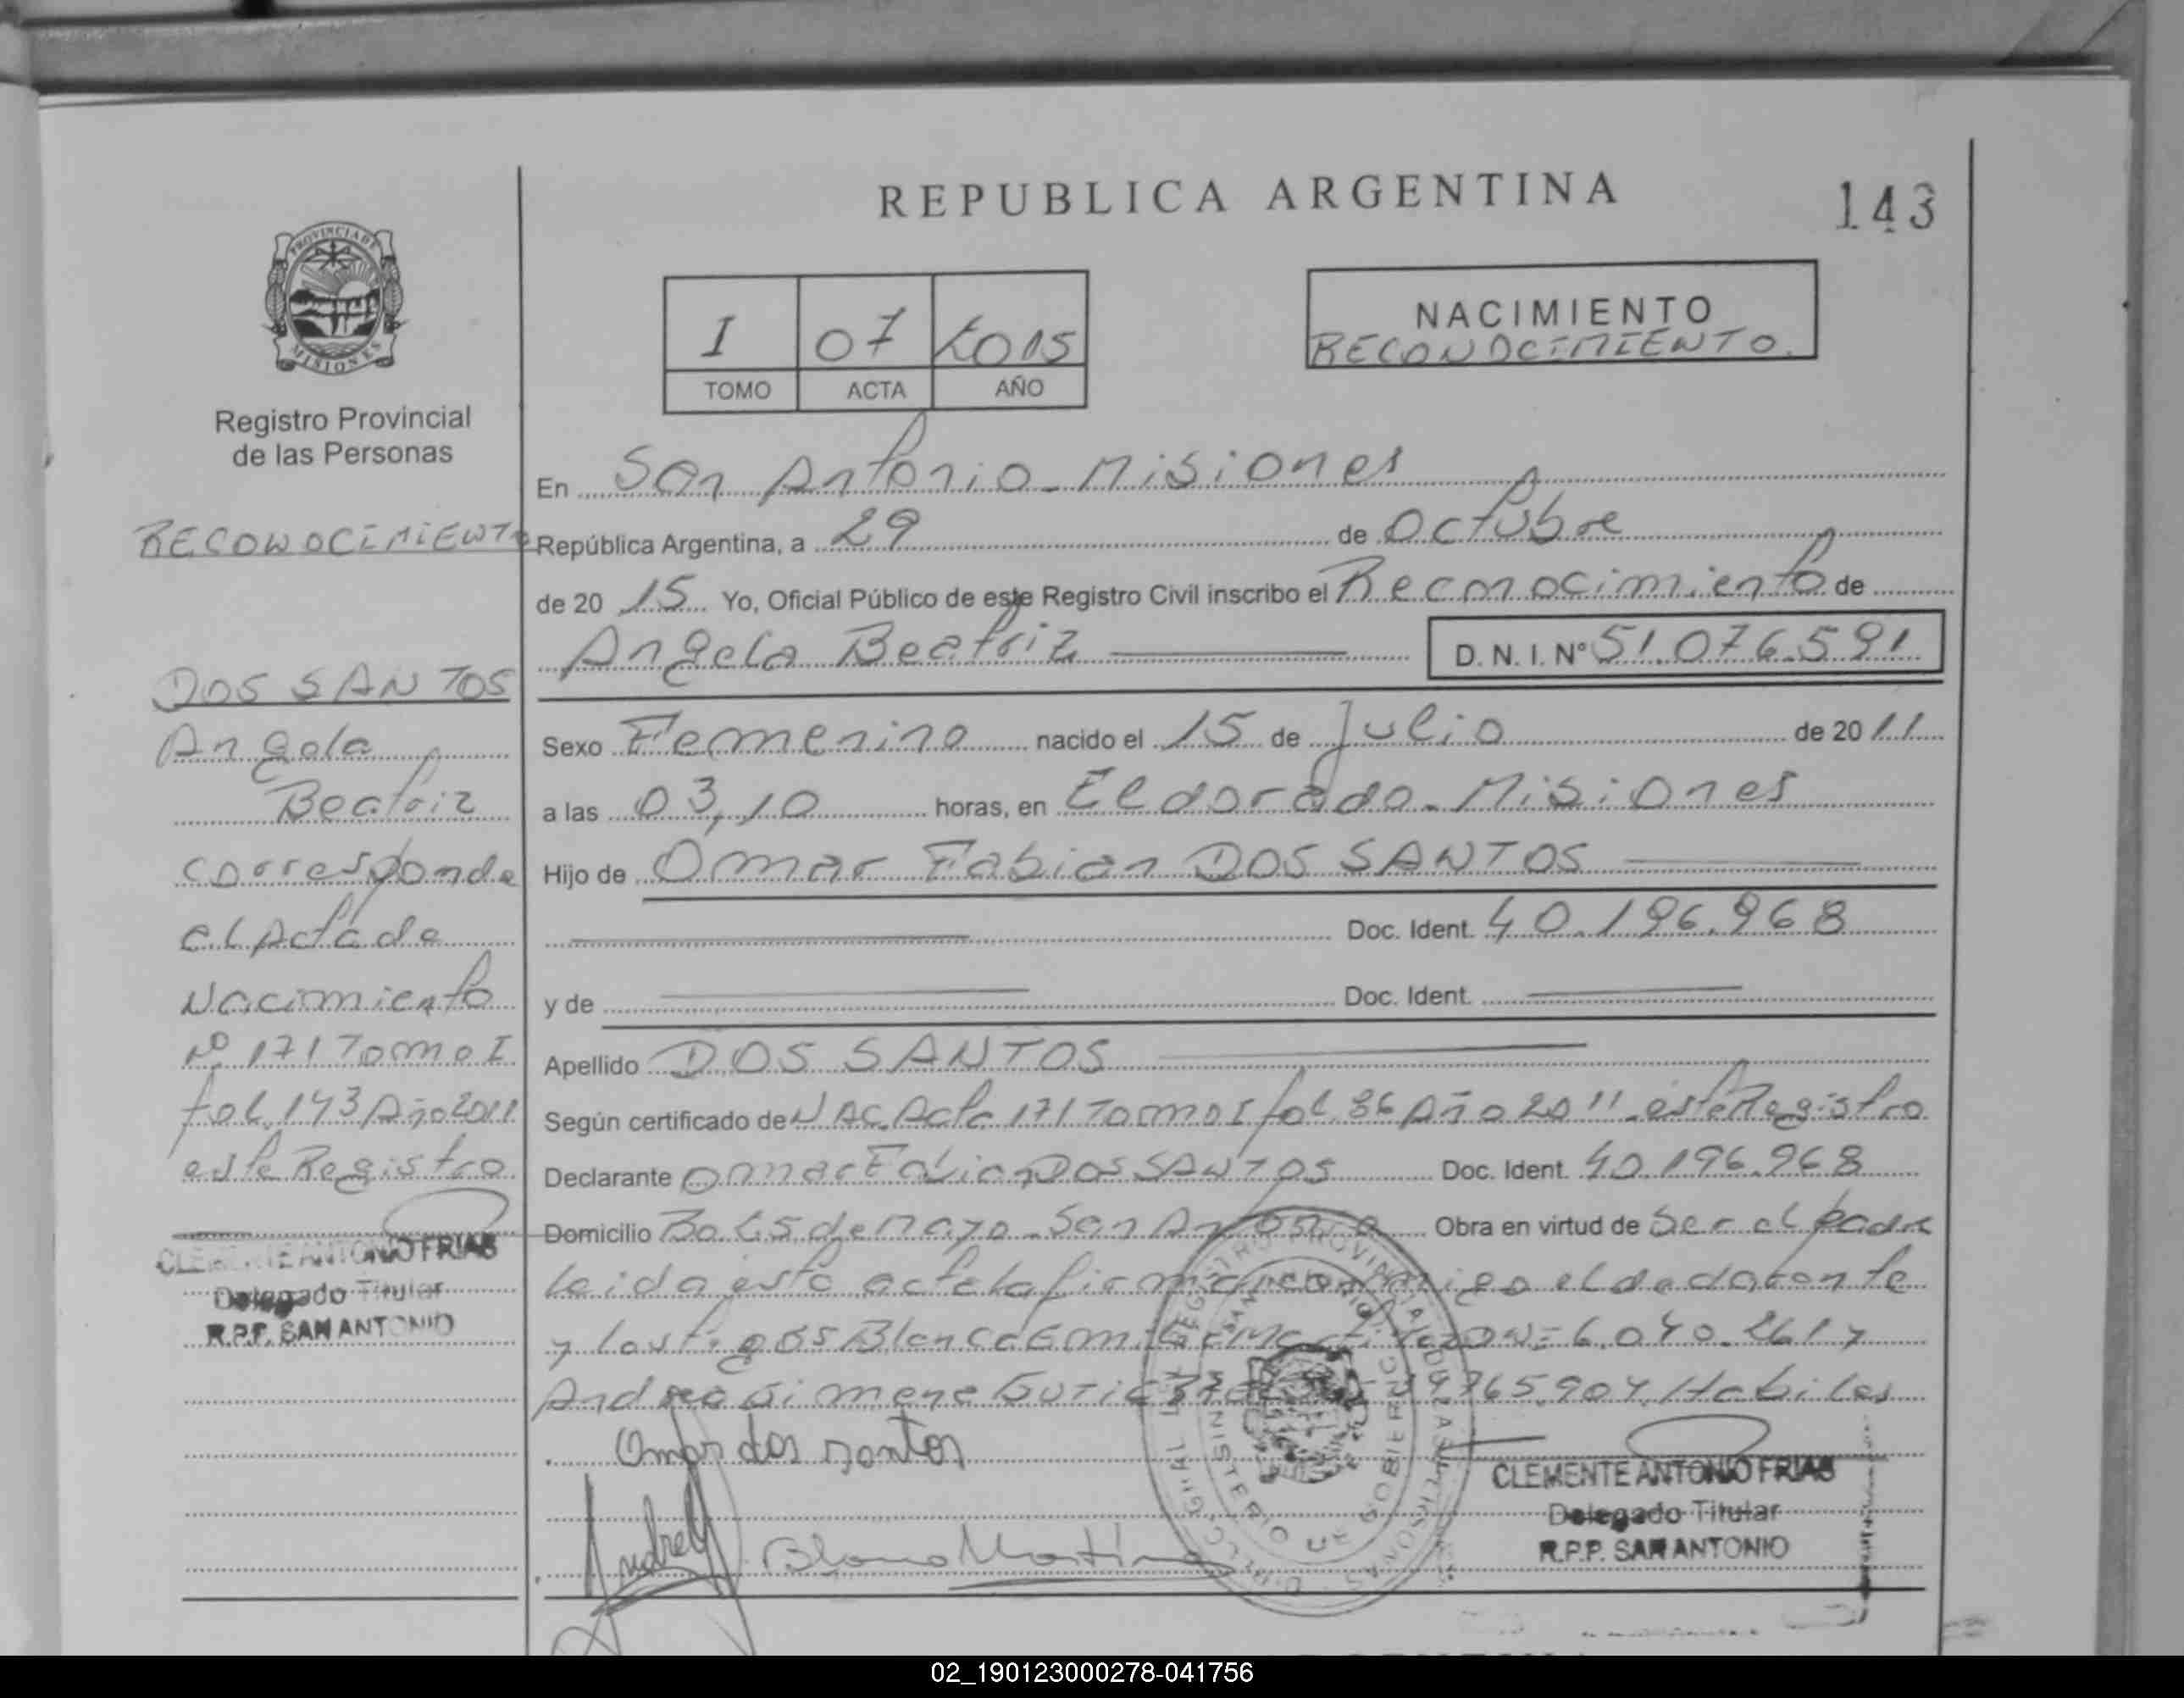 REPUBLICA ARGENTINA
143
PROVINCIA DE
MISIONES
Registro Provincial
de las Personas
I 07 2015
TOMO ACTA AÑO
NACIMIENTO
RECONOCIMIENTO.
En San Antonio - Misiones
República Argentina, a 29 de Octubre
de 20 15 Yo, Oficial Público de este Registro Civil inscribo el Reconocimiento de
Angela Beatriz D. N. I. Nº 51.076.591
Sexo Femenino nacido el 15 de Julio de 20 11
a las 03,10 horas, en Eldorado - Misiones
Hijo de Omar Fabian DOS SANTOS
Doc. Ident. 40.196.968
y de Doc. Ident.
Apellido DOS SANTOS
Según certificado de NAC. Acta 171 Tomo I fol 86 Año 2011 - este Registro
Declarante Omar Fabian DOS SANTOS Doc. Ident. 40.196.968
Domicilio Bo. 25 de Mayo - San Antonio Obra en virtud de Ser el padre
leida esta acta la firma conmigo el declarante
y testigos Blanca Martinez 6.040.261 y
Andrea Gimene Habiles
Omar dos santos
Blanca Martinez
CLEMENTE ANTONIO FRIAS
Delegado Titular
R.P.P. SAN ANTONIO
RECONOCIMIENTO
DOS SANTOS
Angela
Beatriz
corresponde
el Acta de
Nacimiento
Nº 171 Tomo I
fol. 143 Año 2011
este Registro
CLEMENTE ANTONIO FRIAS
Delegado Titular
R.P.P. SAN ANTONIO
02_190123000278-041756